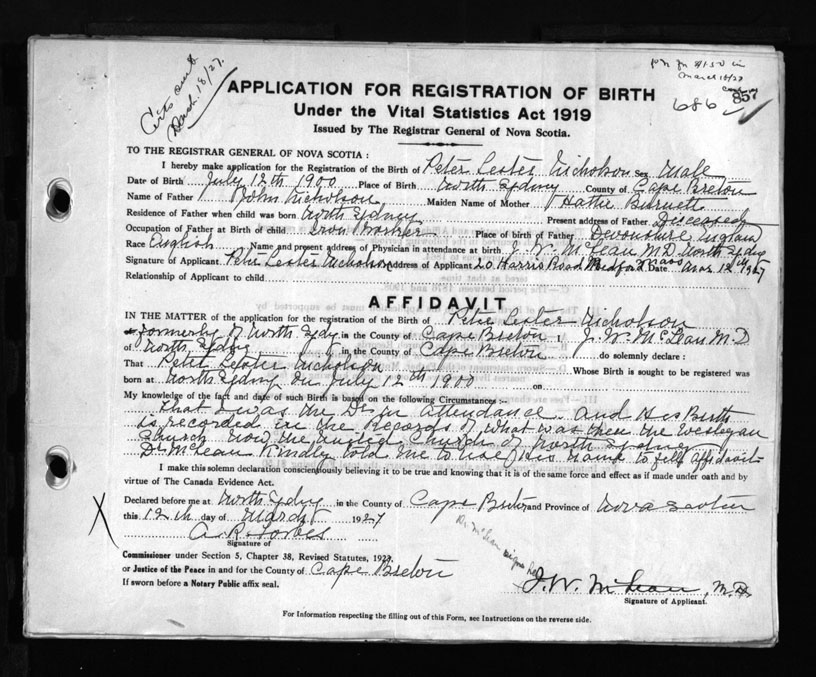 Certs out
March 18/27.
March 18/27
686 857
APPLICATION FOR REGISTRATION OF BIRTH
Under the Vital Statistics Act 1919
Issued by The Registrar General of Nova Scotia.
TO THE REGISTRAR GENERAL OF NOVA SCOTIA :
I hereby make application for the Registration of the Birth of Peter Lester Nicholson Sex Male
Date of Birth July 12th 1900 Place of Birth North Sydney County of Cape Breton
Name of Father John Nicholson Maiden Name of Mother Hattie Burnett
Residence of Father when child was born North Sydney Present address of Father Deceased
Occupation of Father at Birth of child Iron Worker Place of birth of Father Devonshire England
Race English Name and present address of Physician in attendance at birth J. W. McLean M.D. North Sydney
Signature of Applicant Peter Lester Nicholson Address of Applicant 20 Harris Road Medford Mass Date Mar 12th 1927
Relationship of Applicant to child
AFFIDAVIT
IN THE MATTER of the application for the registration of the Birth of Peter Lester Nicholson
Formerly of North Sydney in the County of Cape Breton I, J. W. McLean M.D.
of North Sydney in the County of Cape Breton do solemnly declare :
That Peter Lester Nicholson Whose Birth is sought to be registered was
born at North Sydney on July 12th 1900 on
My knowledge of the fact and date of such Birth is based on the following Circumstances :-
That I was the Dr in Attendance and His Birth
is recorded in the Records of what was then the Wesleyan
Church now the United Church of North Sydney
Dr McLean Kindly told me to use His name to fill Affidavit
I make this solemn declaration conscienciously believing it to be true and knowing that it is of the same force and effect as if made under oath and by
virtue of The Canada Evidence Act.
Declared before me at North Sydney in the County of Cape Breton and Province of Nova Scotia
this 12th day of March 1927
A. R. Forbes
Signature of
Dr. McLean signs here
Commissioner under Section 5, Chapter 38, Revised Statutes, 1923.
or Justice of the Peace in and for the County of Cape Breton
If sworn before a Notary Public affix seal.
J. W. McLean, M.D.
Signature of Applicant.
For Information respecting the filling out of this Form, see Instructions on the reverse side.